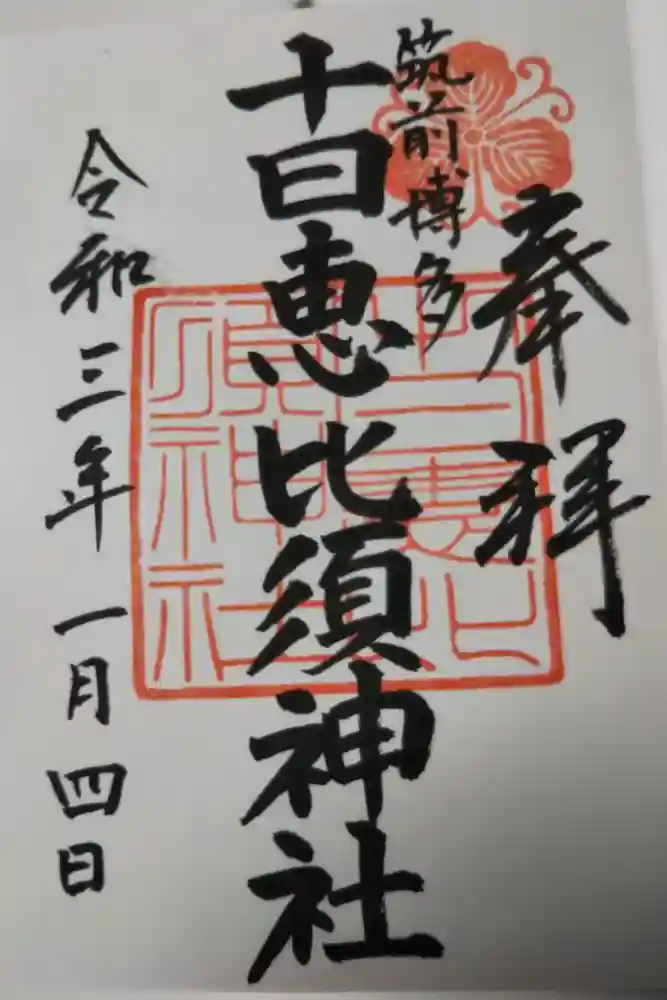 奉拝
筑前博多
十日恵比須神社
令和三年一月四日